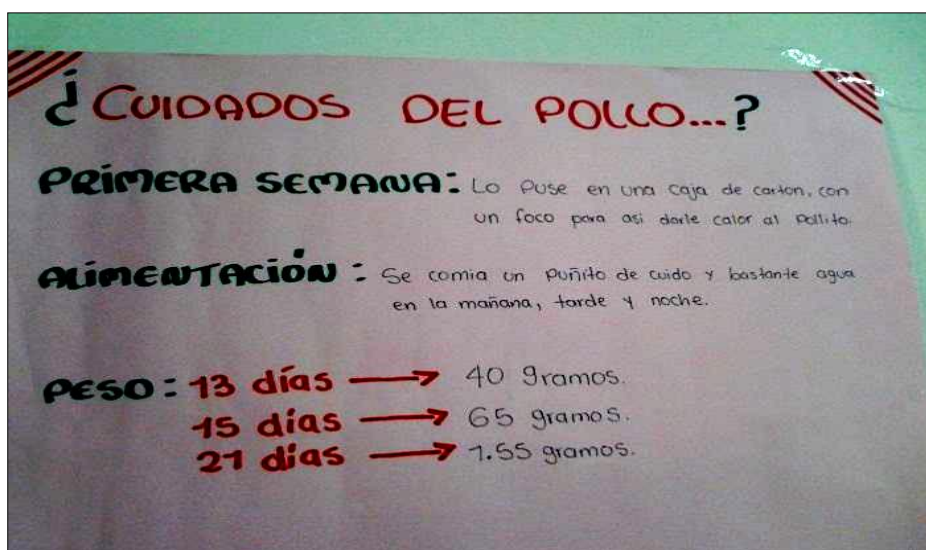 ¿CUIDADOS DEL POLLO...?
PRIMERA SEMANA: Lo Puse en una caja de carton, con
un foco para asi darle calor al Pollito.
ALIMENTACIÓN: Se comia un Puñito de cuido y bastante agua
en la mañana, tarde y noche.
PESO: 13 días → 40 gramos.
15 días → 65 gramos.
21 días → 1.55 gramos.